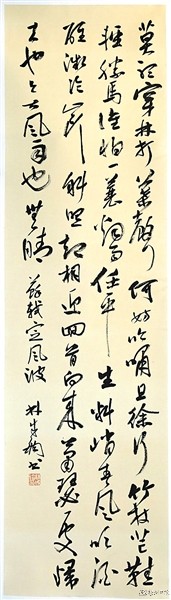 莫聽穿林打葉聲何妨吟嘯且徐行竹杖芒鞋
輕勝馬誰怕一蓑煙雨任平生料峭春風吹酒
醒微冷山頭斜照却相迎回首向來蕭瑟處歸
去也無風雨也無晴 蘇軾定風波 林書